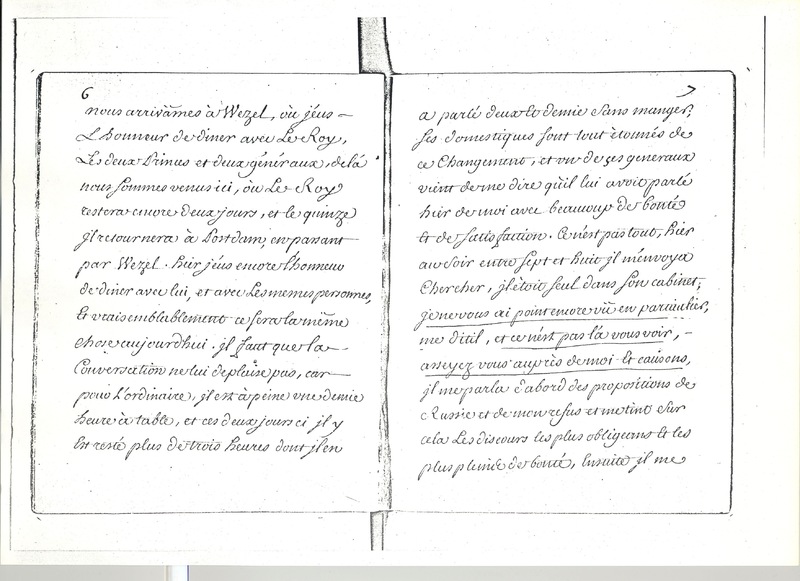 6
nous arrivâmes à Wezel, où j'éus
L'honneur de diner avec Le Roy,
Les deux Princes et deux généraux, de là
nous sommes venus ici, où Le Roy
restera encore deux jours, et le quinze
jl retournera à Postdam, en passant
par Wezel. hier j'éus encore l'honneur
de diner avec lui, et avec Les memes personnes,
Et vraisemblablement ce sera la même
chose aujourdhui. jl faut que la
Conversation ne lui deplaise pas, car
pour L'ordinaire, jl est à peine une demie
heure à table, et ces deux jours ci jl y
Est resté plus de trois heures dont jl en
7
a parlé deux Et demie sans manger,
ses domestiques sont tout étonnés de
ce Changement, et un de ses generaux
vient de me dire qu'il lui avoit parlé
hier de moi avec beaucoup de bonté
Et de satisfaction. Ce n'est pas tout, hier
au soir entre sept et huit jl m'envoya
Chercher, jl étoit seul dans son cabinet;
je ne vous ai point encore vû en particulier,
me dit il, et ce n'est pas là vous voir,
asseyez vous auprès de moi Et causons,
jl me parla d'abord des propositions de
Russie et de mon refus et me tint sur
cela Les discours les plus obligeans Et les
plus pleins de bonté, Ensuite jl me